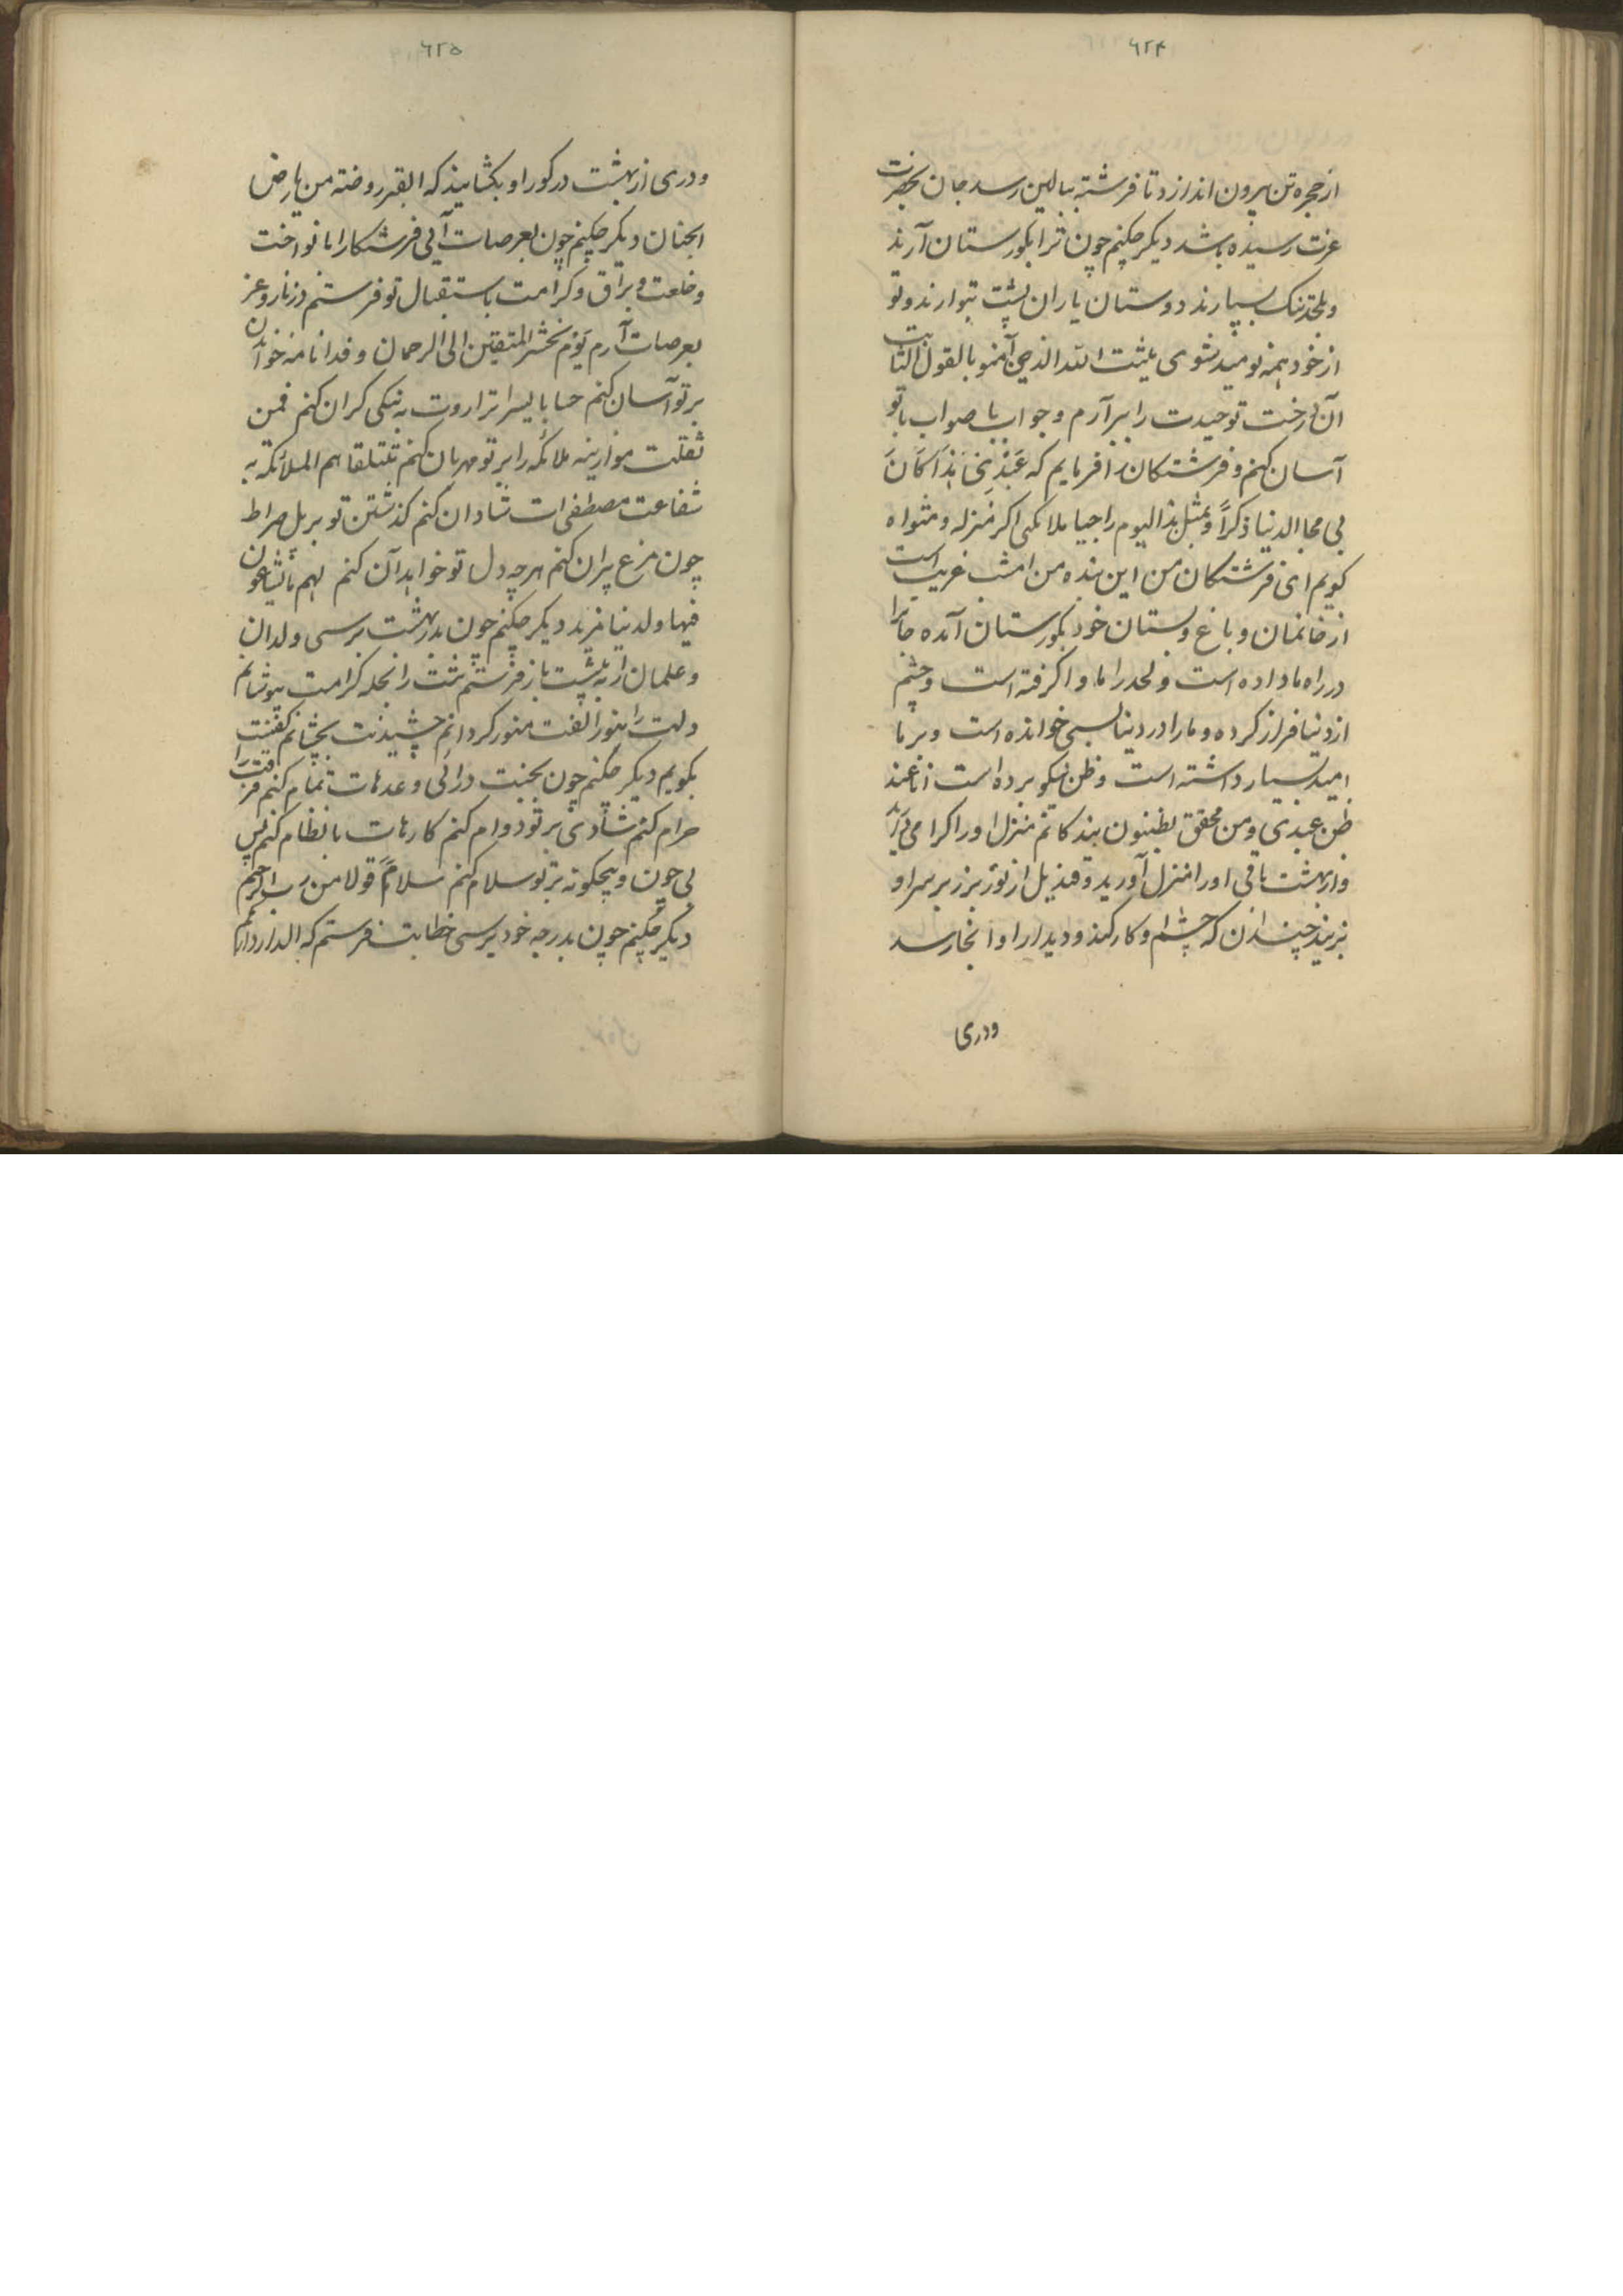 ٦٢۴
از حجره تن بیرون اندازد تا فرشته ببالین رسد جان بحضرت
عزت رسیده باشد دیکر چکنم چون ترا بکورستان آرند
و بلحد تنک بسپارند دوستان یاران پشت بتو ارند و تو
از خود همه نومید شوی یثبت الله الذین آمنو بالقول الثابت
آن درخت توحیدت را ببر آرم و جواب با صواب با تو
آسان کنم و فرشتکان را فرمایم که عبدی هذا کان
بی محبا الدنیا ذکراً و بمثل هذا الیوم راجیا ملائکتی اکرمنزله و مثواه
کویم ای فرشتکان من این بنده من امشب غریب است
از خانمان و باغ و بستان خود بکورستان آمده جانرا
در راه ما داده است و لحد را ماوا کرفته است و چشم
از دنیا فراز کرده و ما را در دنیا بسی خوانده است و بر ما
امید بسیار داشته است و ظن نیکو برده است انا عند
ظن عبدی و من محقق بظنون بندکانم منزل او را کرامی آید
و از بهشت باقی او را منزل آورید و قندیل از نور بزر بر سر او
بزنید چندان که چشم او کار کند و دیدار او آنجا رسد
ودری
٦٢۵
و دری از بهشت در کور او بکشایند که القبر روضته من یارض
الجنان دیکر چکنم چون بعرصات آیی فرشتکارا با نواخت
و خلعت و براق و کرامت باستقبال تو فرستم در ناز و عز
بعرصات آرم یوم نحشر المتقین الی الرحمان وفدا نامه خواندن
بر تو آسان کنم حسابا یسیرا ترازوت به نیکی کران کنم فمن
ثقلت موازینه ملائکه را بر تو مهربان کنم تتلقاهم الملائکه به
شفاعت مصطفی ات شادان کنم کذشتن تو بر پل صراط
چون مرغ پران کنم هر چه دل تو خواهد آن کنم لهم ما یشاعون
فیها ولدینا مزید دیکر چکنم چون بدر بهشت برسی ولدان
و علمان را به پشت باز فرستم تنت را بحله کرامت بپوشانم
دلت را بنور الفت منور کردانم چشیدنت بچشانم کفتنت را
بکویم دیکر چکنم چون بجنت درآئی وعدهات تمام کنم فرقت
حرام کنم شادی بر تو دوام کنم کارهات با نظام کنم پس
بی چون و بیچکونه بر تو سلام کنم سلامً قولا من رب الرحیم
دیکر چکنم چون بدرجه خود برسی خطابت فرستم که الدار دارکم